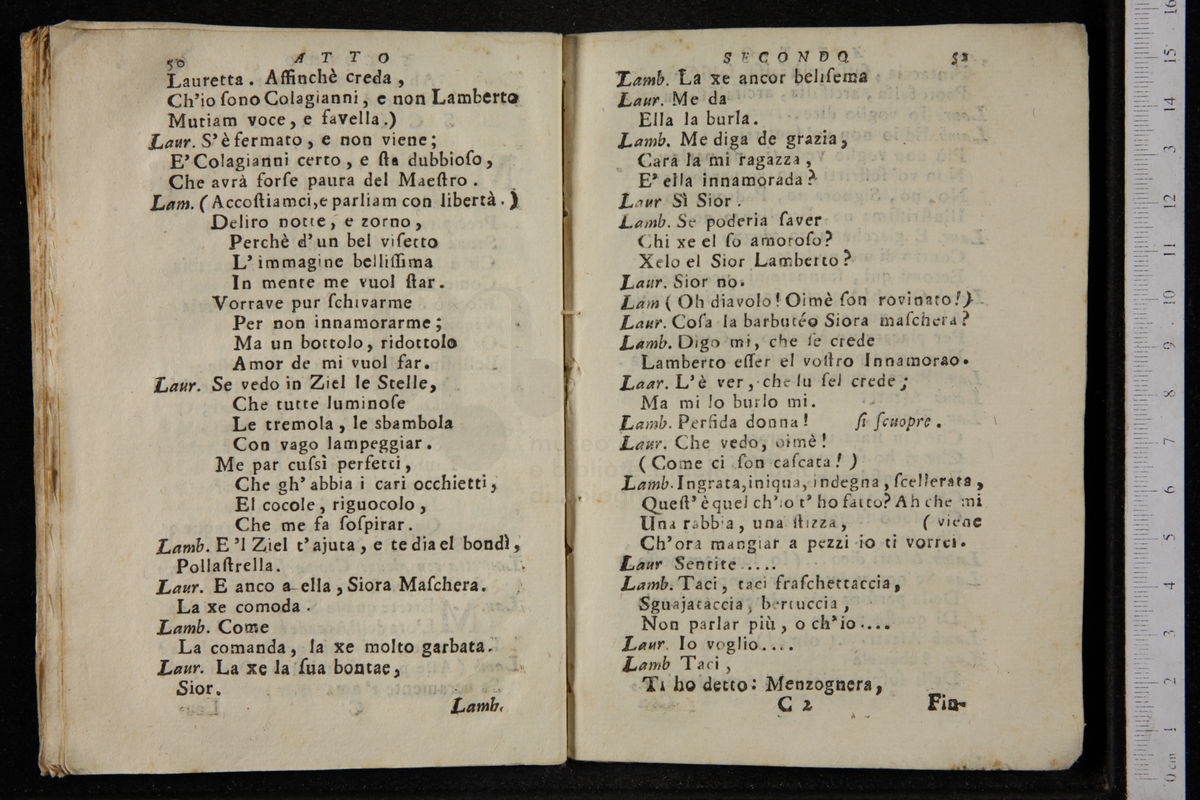 50 ATTO
Lauretta. Affinchè creda,
Ch'io ſono Colagianni, e non Lamberto
Mutiam voce, e favella.)
Laur. S'è fermato, e non viene;
E' Colagianni certo, e ſta dubbioſo,
Che avrà forſe paura del Maeſtro.
Lam. (Accoſtiamci, e parliam con libertà.)
Deliro notte, e zorno,
Perchè d'un bel viſetto
L'immagine belliſſima
In mente me vuol ſtar.
Vorrave pur ſchivarme
Per non innamorarme;
Ma un bottolo, ridottolo
Amor de mi vuol far.
Laur. Se vedo in Ziel le Stelle,
Che tutte luminoſe
Le tremola, le sbambola
Con vago lampeggiar.
Me par cuſsì perfetti,
Che gh'abbia i cari occhietti,
El cocole, riguocolo,
Che me fa ſoſpirar.
Lamb. E'l Ziel t'ajuta, e te dia el bondì,
Pollaſtrella.
Laur. E anco a ella, Siora Maſchera.
La xe comoda.
Lamb. Come
La comanda, la xe molto garbata.
Laur. La xe la ſua bontae,
Sior.
Lamb.
SECONDO 51
Lamb. La xe ancor beliſema
Laur. Me da
Ella la burla.
Lamb. Me diga de grazia,
Cara la mi ragazza,
E' ella innamorada?
Laur Sì Sior.
Lamb. Se poderia ſaver
Chi xe el ſo amoroſo?
Xelo el Sior Lamberto?
Laur. Sior no.
Lam (Oh diavolo! Oimè ſon rovinato!)
Laur. Coſa la barbutéo Siora maſchera?
Lamb. Digo mi, che ſe crede
Lamberto eſſer el voſtro Innamorao.
Laar. L'è ver, che lu ſel crede;
Ma mi lo burlo mi.
Lamb. Perfida donna! ſi ſcuopre.
Laur. Che vedo, oimè!
(Come ci ſon caſcata!)
Lamb. Ingrata, iniqua, indegna, ſcellerata,
Queſt' è quel ch'io t'ho fatto? Ah che mi
Una rabbia, una ſtizza, (viene
Ch'ora mangiar a pezzi io ti vorrei.
Laur Sentite....
Lamb. Taci, taci fraſchettaccia,
Sguajataccia, bertuccia,
Non parlar più, o ch'io....
Laur. Io voglio....
Lamb Taci,
Ti ho detto: Menzognera,
C 2 Fin-